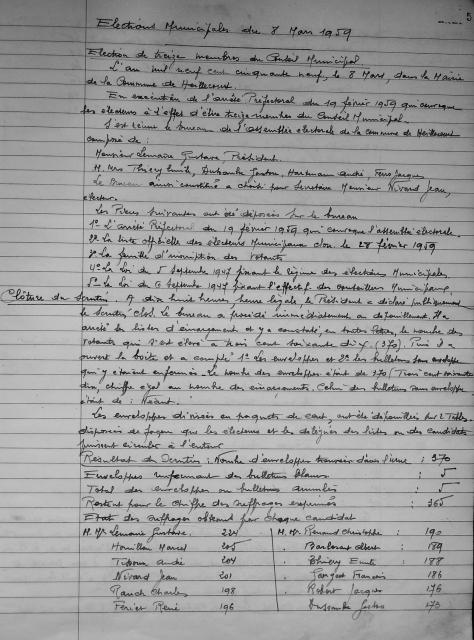 5
Elections Municipales du 8 Mars 1959
Election de treize membres du Conseil Municipal
L'an mil neuf cent cinquante neuf, le 8 Mars, dans la Mairie
de la Commune de Heillecourt
En exécution de l'arrêté Préfectoral du 19 février 1959 qui convoque
les électeurs à l'effet d'élire treize membres du Conseil Municipal.
S'est réuni le bureau de l'assemblée électorale de la commune de Heillecourt
composé de :
Monsieur Lemaire Gustave, Président.
M. Mrs Thiery Emile, Dussaulx Gaston, Hartmann André, Jacques
Le Bureau ainsi constitué a choisi pour Secrétaire Monsieur Nivard Jean,
électeur.
Les Pièces suivantes ont été déposées sur le bureau
1° L'arrêté Préfectoral du 19 février 1959 qui convoque l'assemblée électorale.
2° La liste officielle des électeurs Municipaux close le 28 février 1959
3° La feuille d'inscription des votants
4° La Loi du 5 Septembre 1947 fixant le régime des élections Municipales
5° La loi du 6 Septembre 1947 fixant l'effectif des conseillers Municipaux.
Clôture du Scrutin. A dix huit heures, heure légale, le Président a déclaré publiquement
le scrutin clos. Le bureau a procédé immédiatement au dépouillement. Il a
arrêté les listes d'émargement et y a constaté, en toutes lettres, le nombre des
votants qui s'est élevé à trois cent soixante dix. (370). Puis il a
ouvert la boîte et a compté 1° les enveloppes et 2° les bulletins sans enveloppe
qui y étaient enfermés. Le nombre des enveloppes était de 370 (Trois cent soixante
dix) chiffre égal au nombre des émargements. Celui des bulletins sans enveloppe
était de : Néant.
Les enveloppes divisées en paquets de cent, ont été dépouillées sur 2 Tables
disposées de façon que les électeurs et les délégués des listes ou des candidats
puissent circuler à l'entour
Résultat du Scrutin : Nombre d'enveloppes trouvées dans l'urne : 370
Enveloppes renfermant des bulletins blancs : 5
Total des enveloppes ou bulletins annulés : 5
Restant pour le chiffre des suffrages exprimés : 365
Etat des suffrages obtenus par chaque candidat
M. Mr Lemaire Gustave. 224 M. Mr Renaud Christophe : 190
Houillon Marcel 205 Barbesant Albert : 189
Tisson André 204 Thiéry Emile : 188
Nivard Jean 201 Jacquot Francis : 186
Rauch Charles 198 Robert Jacques 176
Férier René 196 Dussaulx Gaston 173